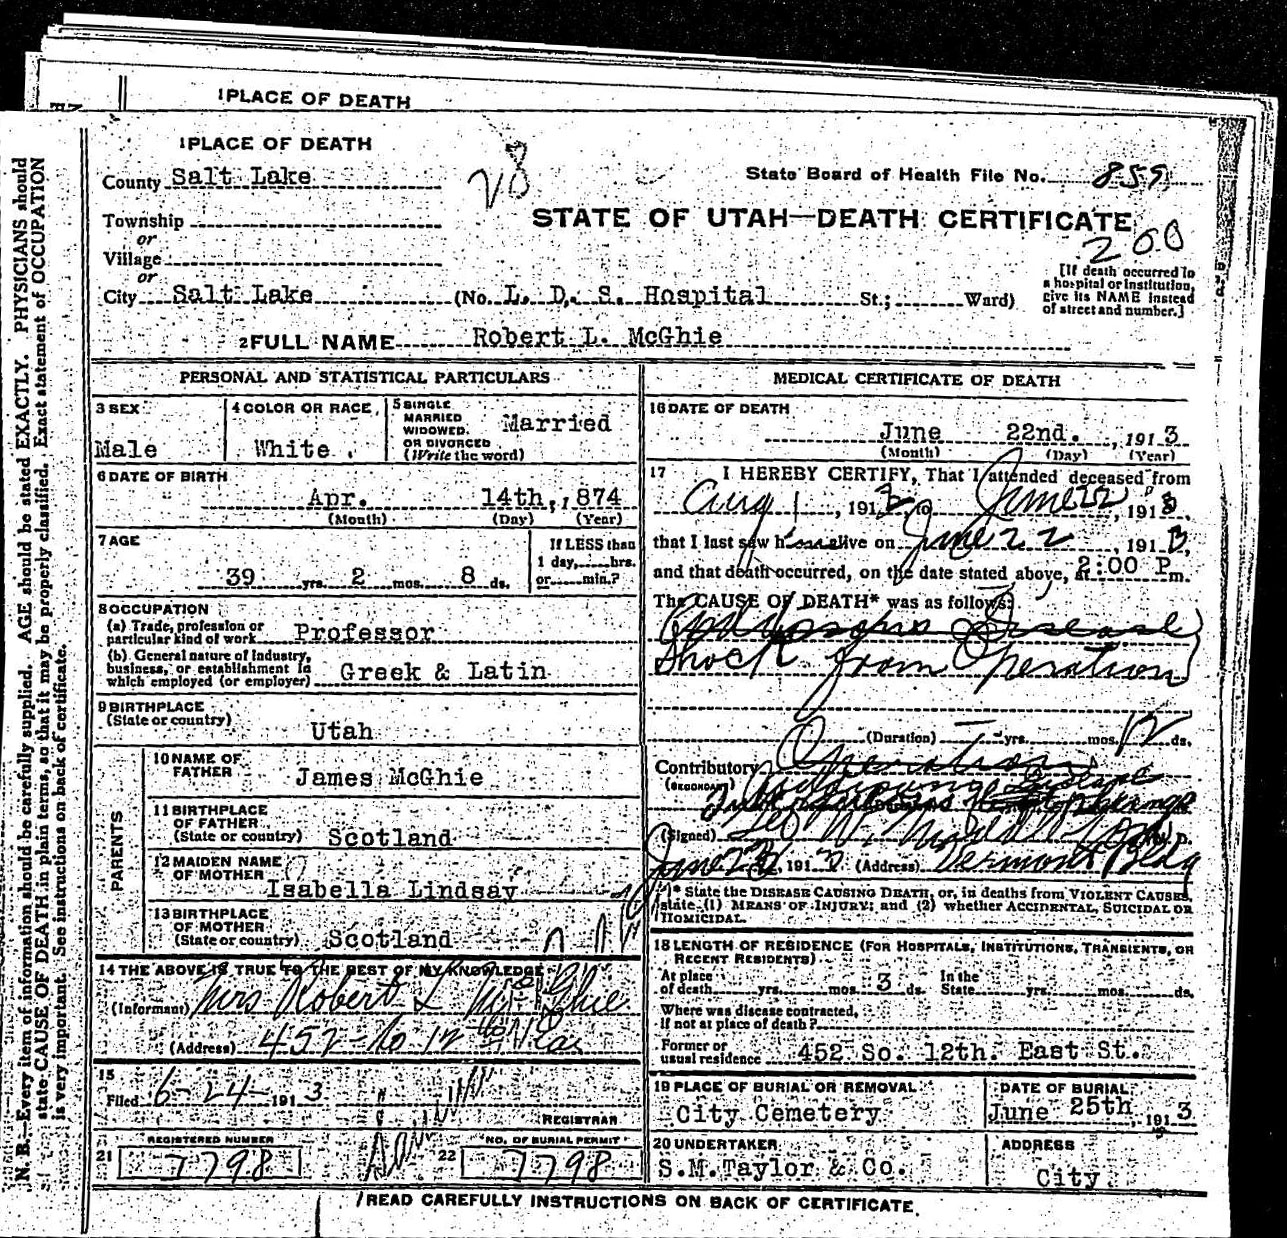 1 PLACE OF DEATH
1 PLACE OF DEATH
County Salt Lake
28
State Board of Health File No. 859
Township
STATE OF UTAH—DEATH CERTIFICATE
200
or
Village
or
City Salt Lake (No. L. D. S. Hospital St.; Ward)
[If death occurred in a hospital or institution, give its NAME instead of street and number.]
2 FULL NAME Robert L. McGhie
PERSONAL AND STATISTICAL PARTICULARS
3 SEX
Male
4 COLOR OR RACE
White
5 SINGLE
MARRIED
WIDOWED
OR DIVORCED
(Write the word)
Married
6 DATE OF BIRTH
Apr. 14th, 1874
(Month) (Day) (Year)
7 AGE
39 yrs. 2 mos. 8 ds.
If LESS than
1 day, hrs.
or min.?
8 OCCUPATION
(a) Trade, profession or
particular kind of work Professor
(b) General nature of industry,
business, or establishment in
which employed (or employer) Greek & Latin
9 BIRTHPLACE
(State or country)
Utah
PARENTS
10 NAME OF
FATHER James McGhie
11 BIRTHPLACE
OF FATHER
(State or country) Scotland
12 MAIDEN NAME
OF MOTHER
Isabella Lindsay
13 BIRTHPLACE
OF MOTHER
(State or country) Scotland
14 THE ABOVE IS TRUE TO THE BEST OF MY KNOWLEDGE
(Informant) Mrs Robert L McGhie
(Address) 452 So 12
15
Filed 6-24- 1913
REGISTRAR
21 REGISTERED NUMBER
7798
22 NO. OF BURIAL PERMIT
7798
MEDICAL CERTIFICATE OF DEATH
16 DATE OF DEATH
June 22nd. , 1913
(Month) (Day) (Year)
17 I HEREBY CERTIFY, That I attended deceased from
Aug 1 , 191 to June 22 , 1913
that I last saw him alive on June 22 , 1913,
and that death occurred, on the date stated above, at 2:00 P.m.
The CAUSE OF DEATH* was as follows:
Disease
Shock from Operation
(Duration) yrs. mos. 12 ds.
Contributory Operation
(SECONDARY)
(Signed)
June 23, 1913 (Address) Vermont Bldg
* State the DISEASE CAUSING DEATH, or, in deaths from VIOLENT CAUSES,
state (1) MEANS OF INJURY; and (2) whether ACCIDENTAL, SUICIDAL OR
HOMICIDAL.
18 LENGTH OF RESIDENCE (FOR HOSPITALS, INSTITUTIONS, TRANSIENTS, OR
RECENT RESIDENTS)
At place
of death yrs. mos. 3 ds.
In the
State yrs. mos. ds.
Where was disease contracted,
if not at place of death?
Former or
usual residence 452 So. 12th. East St.
19 PLACE OF BURIAL OR REMOVAL
City Cemetery
DATE OF BURIAL
June 25th, 1913
20 UNDERTAKER
S.M. Taylor & Co.
ADDRESS
City
READ CAREFULLY INSTRUCTIONS ON BACK OF CERTIFICATE.
N. B.—Every item of information should be carefully supplied. AGE should be stated EXACTLY. PHYSICIANS should
state CAUSE OF DEATH in plain terms, so that it may be properly classified. Exact statement of OCCUPATION
is very important. See instructions on back of certificate.